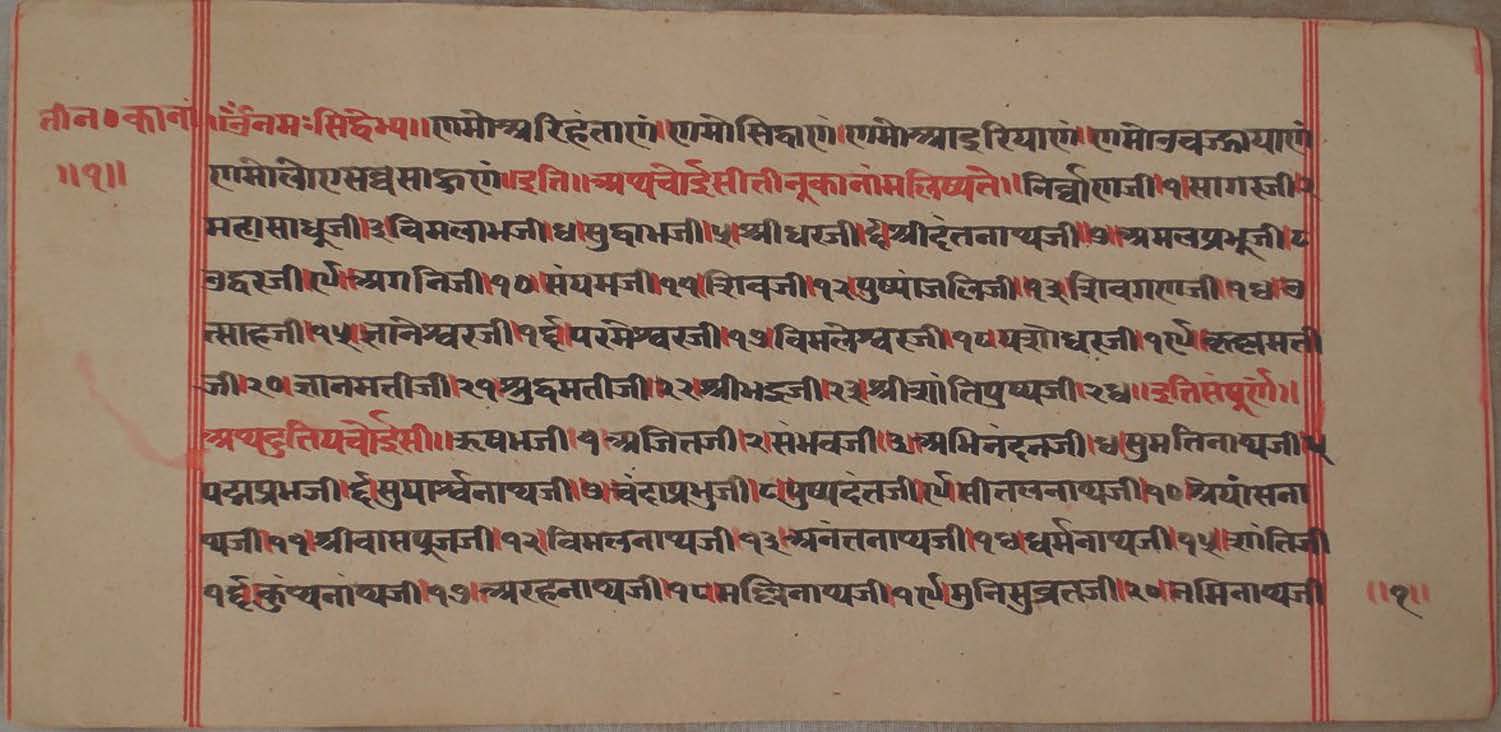 तीन०कानां ॥ॐनमःसिद्धेभ्य॥णमोअरिहंताणं।णमोसिद्धाणं।णमोआइरियाणं।णमोउवज्झायाणं
॥१॥ णमोलोएसव्वसाहूणं॥इति॥अथचौईसीतीनूकानांमलिष्यते॥निर्वाणजी।१।सागरजी।२
महासाधूजी।३।विमलाभजी।४।सुद्धाभजी।५।श्रीधरजी।६।श्रीदंतनाथजी।७।अमलप्रभूजी।८
उद्धरजी।९।अगनिजी।१०।संयमजी।११।शिवजी।१२।पुष्पांजलिजी।१३।शिवगणजी।१४।उ
त्साहजी।१५।ज्ञानेश्वरजी।१६।परमेश्वरजी।१७।विमलेश्वरजी।१८।यशोधरजी।१९।कृष्णमती
जी।२०।ज्ञानमतीजी।२१।श्रुद्धमतीजी।२२।श्रीभद्रजी।२३।श्रीशांतिपुष्यजी।२४॥इतिसंपूर्णं॥
अथदुतियचौईसी॥ऋषभजी।१।अजितजी।२।संभवजी।३।अभिनंदनजी।४।सुमतिनाथजी।५
पद्मप्रभजी।६।सुपार्श्वनाथजी।७।चंदाप्रभुजी।८।पुष्पदंतजी।९।सीतलनाथजी।१०।श्रियांसना
थजी।११।श्रीवासपूजजी।१२।विमलनाथजी।१३।अनंतनाथजी।१४।धर्मनाथजी।१५।शांतिजी
१६।कुंथनांथजी।१७।अरहनाथजी।१८।मल्लिनाथजी।१९।मुनिसुव्रतजी।२०।नमिनाथजी ॥१॥